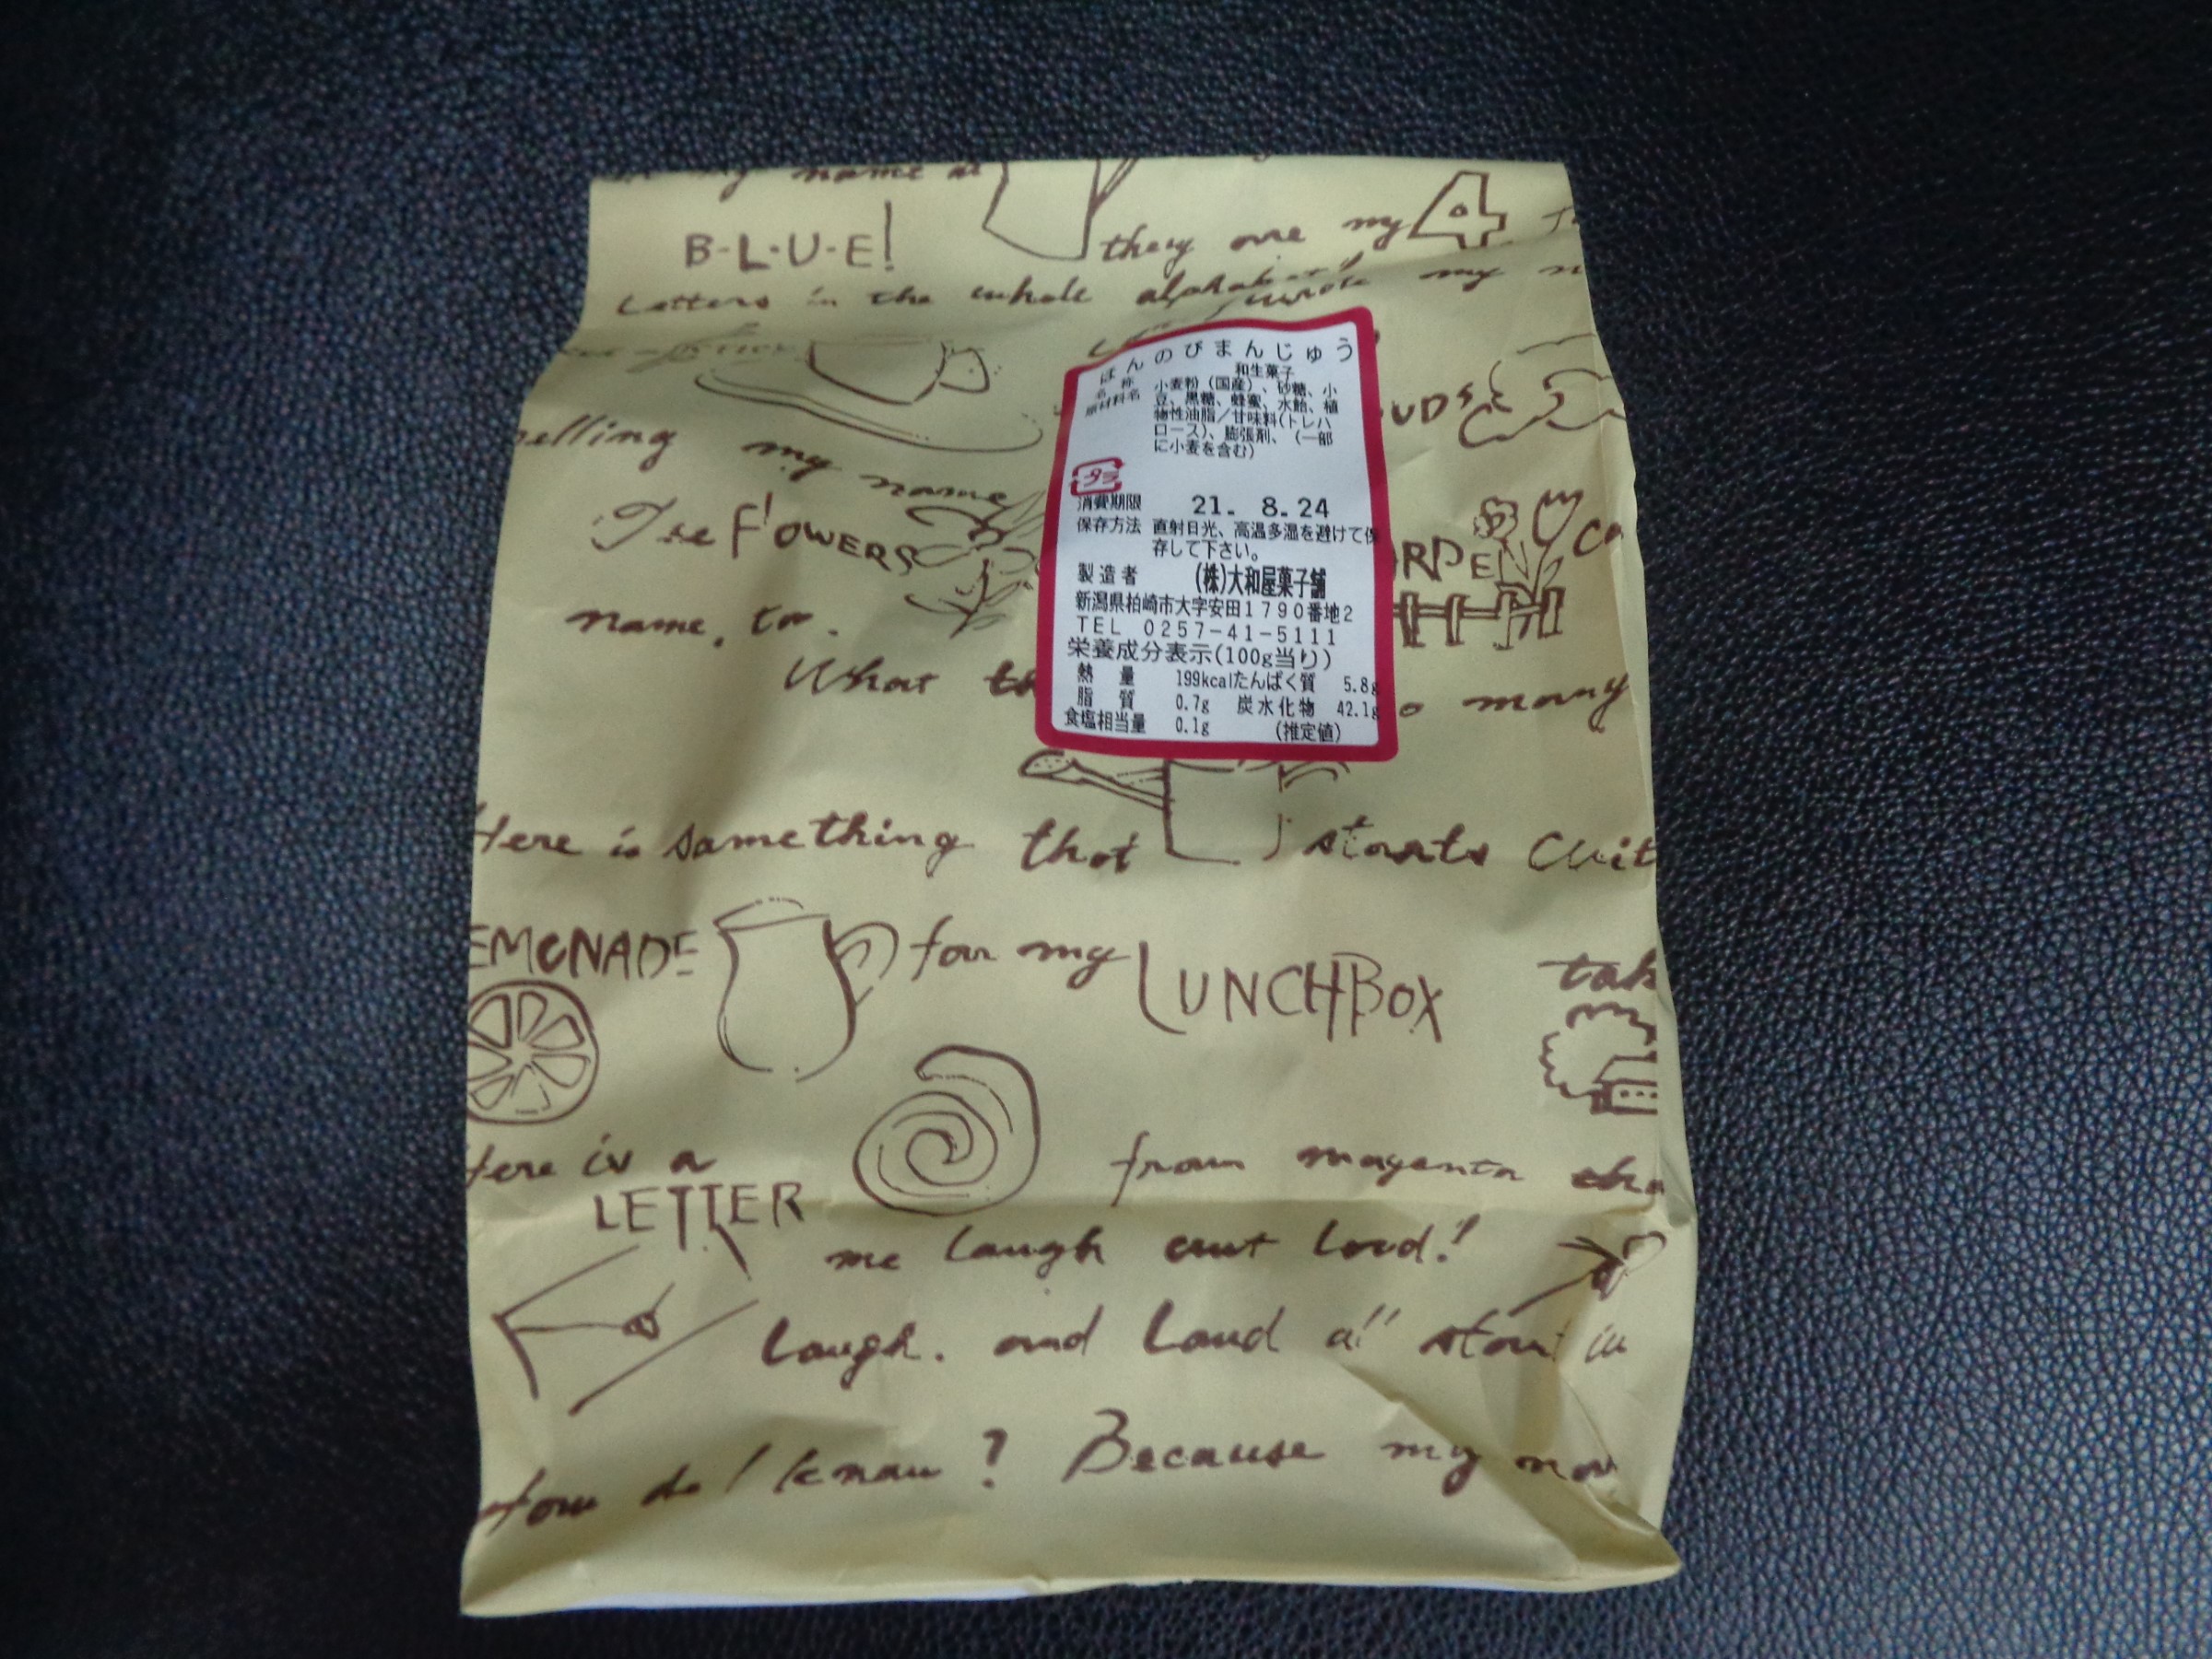 my name
B-L-U-E!
they are my 4
Letters in the whole alphabet!
wrote my
ほんのびまんじゅう
名称 和生菓子
原材料名 小麦粉(国産)、砂糖、小
豆、黒糖、蜂蜜、水飴、植
物性油脂/甘味料(トレハ
ロース)、膨張剤、(一部
に小麦を含む)
プラ
消費期限 21. 8.24
保存方法 直射日光、高温多湿を避けて保
存して下さい。
製造者 (株)大和屋菓子舗
新潟県柏崎市大字安田1790番地2
TEL 0257-41-5111
栄養成分表示(100g当り)
熱量 199kcal たんぱく質 5.8g
脂質 0.7g 炭水化物 42.1g
食塩相当量 0.1g (推定値)
UDS
elling my name
FlOWERS
RDE
name, too.
What
many
Here is something that starts
EMONADE for my LUNCHBOX
tak
Here is a LETTER from magenta
me laugh out loud!
Laugh. and Loud all start in
How do I know? Because my